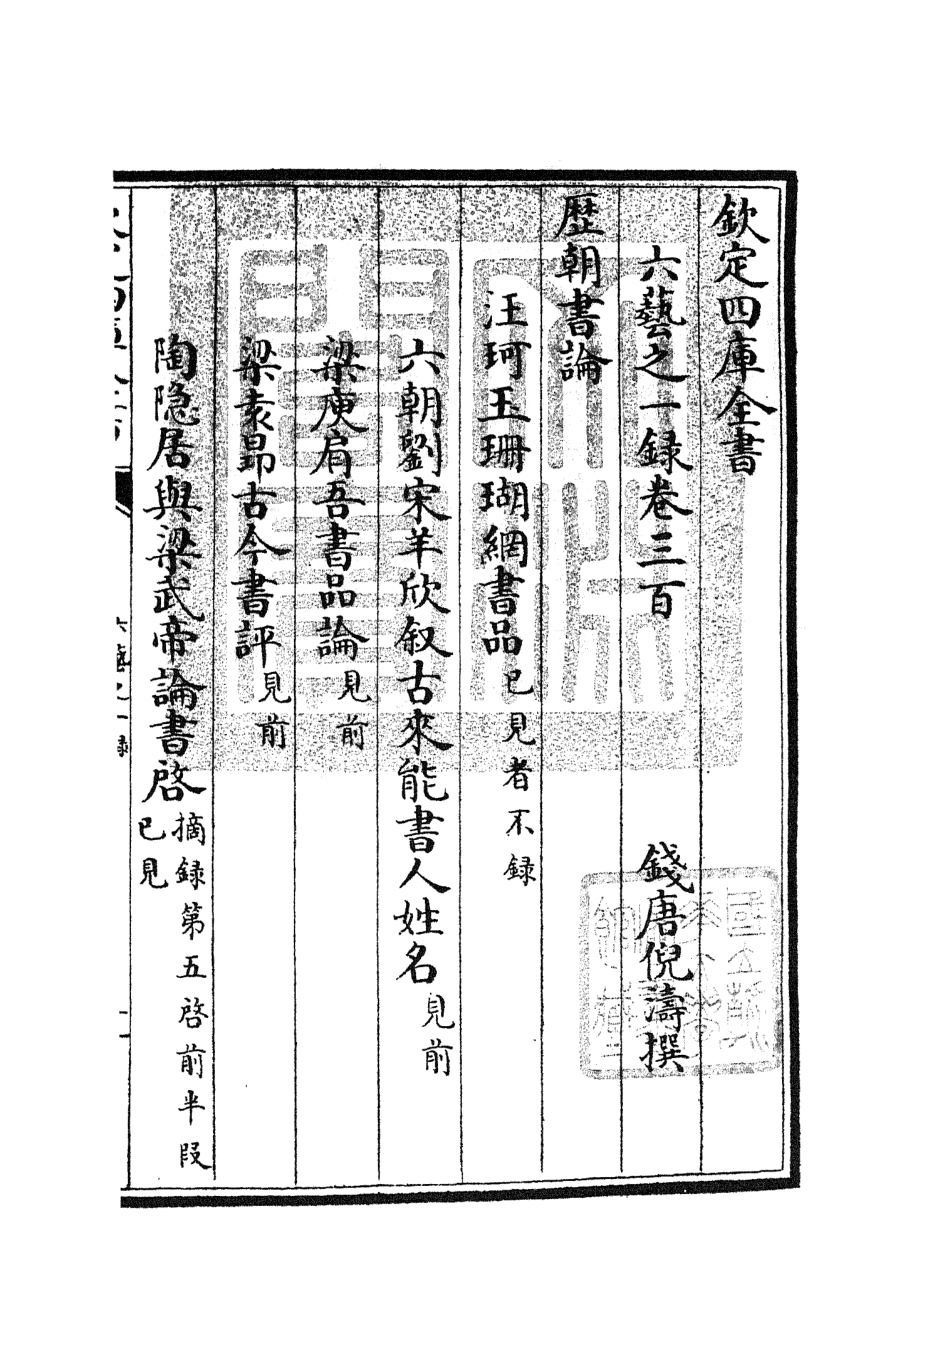 欽定四庫全書
六藝之一録卷三百
錢唐倪濤撰
歷朝書論
汪珂玉珊瑚網書品已見者不録
六朝劉宋羊欣叙古來能書人姓名見前
梁庾肩吾書品論見前
梁袁昻古今書評見前
陶隐居與梁武帝論書啓摘録第五啓前半段已見
六藝之一録